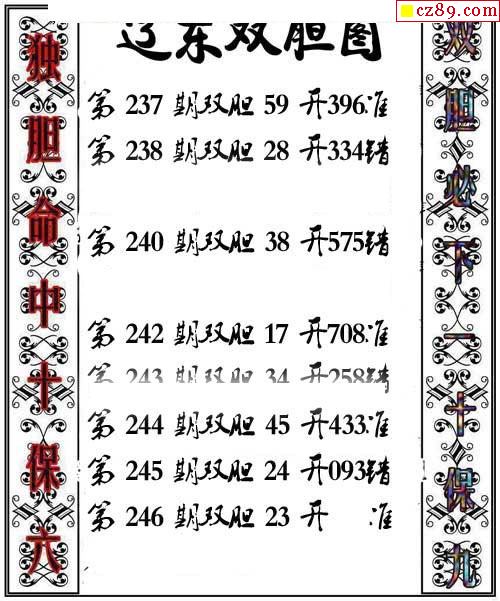 cz89.com
辽东双胆图
独胆命中十保六
双胆必下一十保九
第 237 期双胆 59 开396准
第 238 期双胆 28 开334错
第 240 期双胆 38 开575错
第 242 期双胆 17 开708准
第 243 期双胆 34 开258错
第 244 期双胆 45 开433准
第 245 期双胆 24 开093错
第 246 期双胆 23 开 准